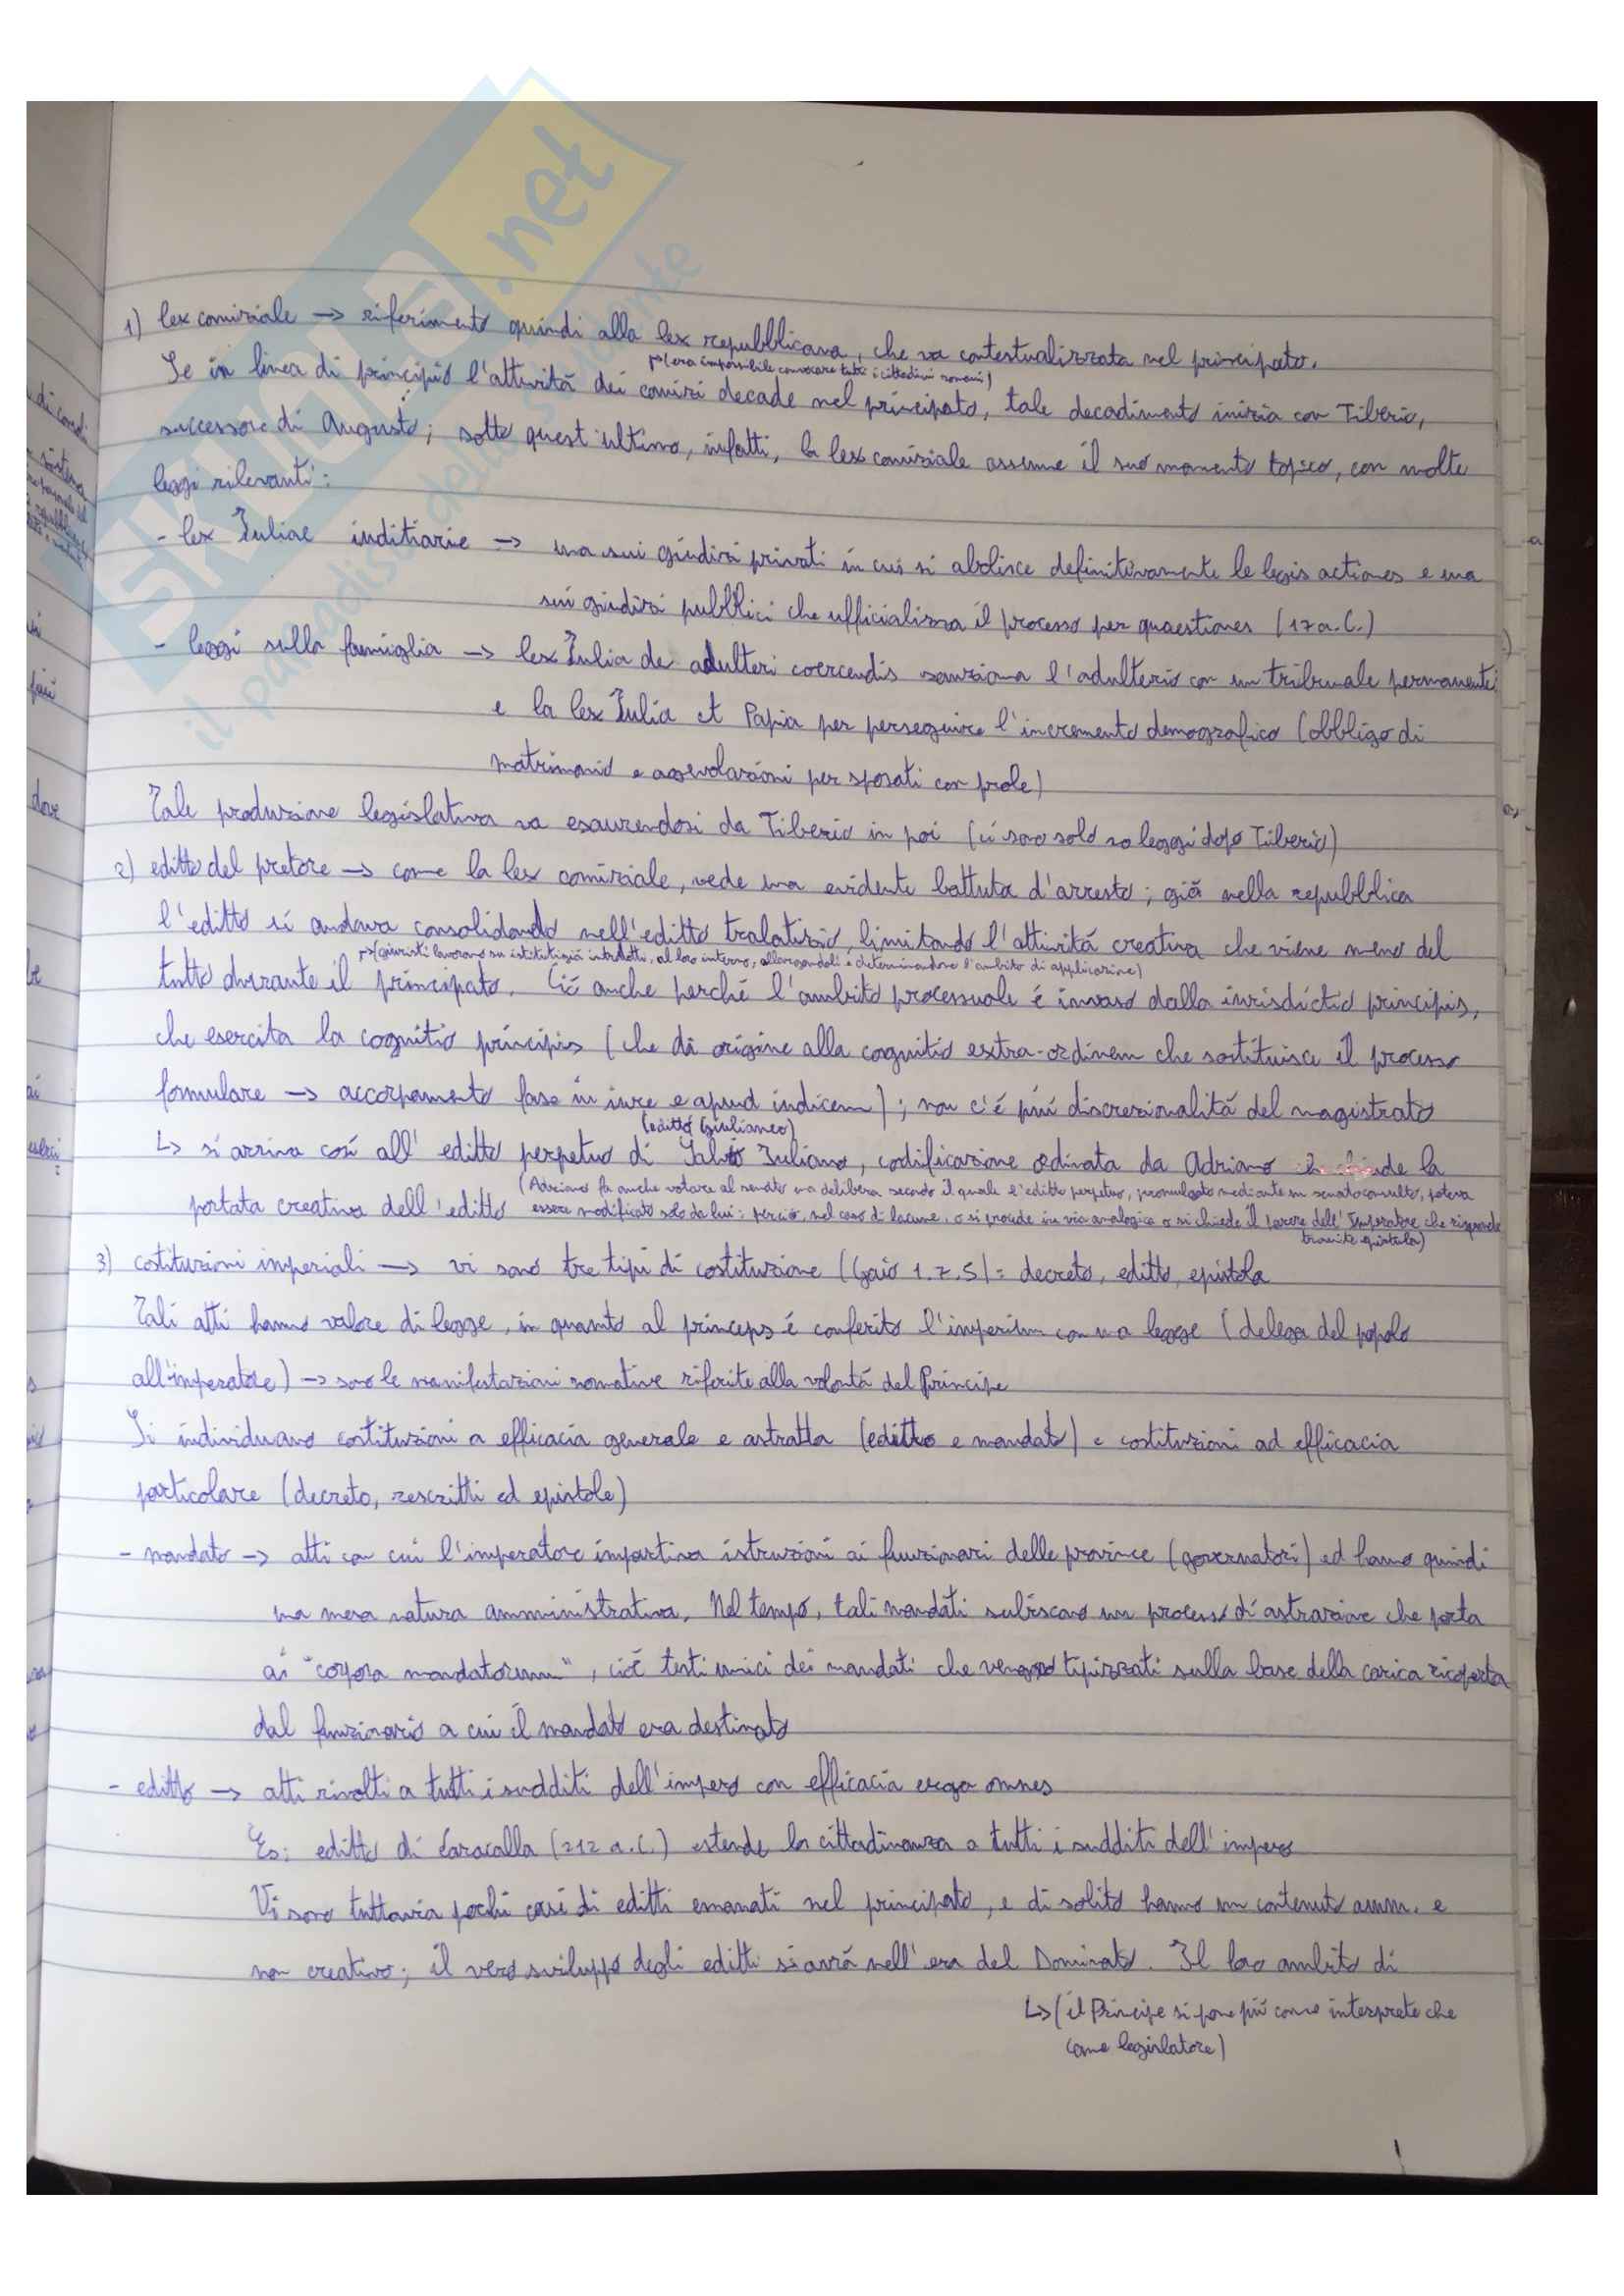 SKUOLA.net
il paradiso dello studente
1) lex comiziale → riferimento quindi alla lex repubblicana, che va contestualizzata nel principato.
Se in linea di principio l'attività dei comizi decade nel principato, tale decadimento inizia con Tiberio,
(era impossibile convocare tutti i cittadini romani)
successore di Augusto; sotto quest'ultimo, infatti, la lex comiziale assume il suo momento topico, con molte
leggi rilevanti:
- lex Iuliae iuditiarie → una sui giudizi privati in cui si abolisce definitivamente le legis actiones e una
sui giudizi pubblici che ufficializza il processo per quaestiones (17 a.C.)
- leggi sulla famiglia → lex Iulia de adulteri coercendis sanziona l'adulterio con un tribunale permanente
e la lex Iulia et Papia per perseguire l'incremento demografico (obbligo di
matrimonio e agevolazioni per sposati con prole)
Tale produzione legislativa va esaurendosi da Tiberio in poi (ci sono solo 20 leggi dopo Tiberio)
2) editto del pretore → come la lex comiziale, vede una evidente battuta d'arresto; già nella repubblica
l'editto si andava consolidando nell'editto tralatizio, limitando l'attività creativa che viene meno del
(giuristi lavorano su istituti già introdotti, al loro interno, allargandoli e determinandone l'ambito di applicazione)
tutto durante il principato. Ciò anche perché l'ambito processuale è invaso dalla iurisdictio principis,
che esercita la cognitio principis (che dà origine alla cognitio extra-ordinem che sostituisce il processo
formulare → accorpamento fase in iure e apud iudicem); non c'è più discrezionalità del magistrato
(editto giulianeo)
↳ si arriva così all'editto perpetuo di Salvio Iuliano, codificazione ordinata da Adriano che chiude la
portata creativa dell'editto (Adriano fa anche votare al senato una delibera secondo il quale l'editto perpetuo, promulgato mediante un senatoconsulto, poteva
essere modificato solo da lui: perciò, nel caso di lacune, o si procede in via analogica o si chiede il parere dell'Imperatore che risponde
tramite epistula)
3) costituzioni imperiali → vi sono tre tipi di costituzione (Gaio 1.7.5) = decreto, editto, epistola
Tali atti hanno valore di legge, in quanto al princeps è conferito l'imperium con una legge (delega del popolo
all'imperatore) → sono le manifestazioni normative riferite alla volontà del Principe
Si individuano costituzioni a efficacia generale e astratta (editto e mandato) e costituzioni ad efficacia
particolare (decreto, rescritti ed epistole)
- mandato → atti con cui l'imperatore impartiva istruzioni ai funzionari delle province (governatori) ed hanno quindi
una mera natura amministrativa. Nel tempo, tali mandati subiscono un processo di astrazione che porta
ai "corpora mandatorum", cioè testi unici dei mandati che vengono tipizzati sulla base della carica ricoperta
dal funzionario a cui il mandato era destinato
- editto → atti rivolti a tutti i sudditi dell'impero con efficacia erga omnes
Es: editto di Caracalla (212 a.C.) estende la cittadinanza a tutti i sudditi dell'impero
Vi sono tuttavia pochi casi di editti emanati nel principato, e di solito hanno un contenuto amm. e
non creativo; il vero sviluppo degli editti si avrà nell'era del Dominato. Il loro ambito di
↳ (il Principe si pone più come interprete che
come legislatore)